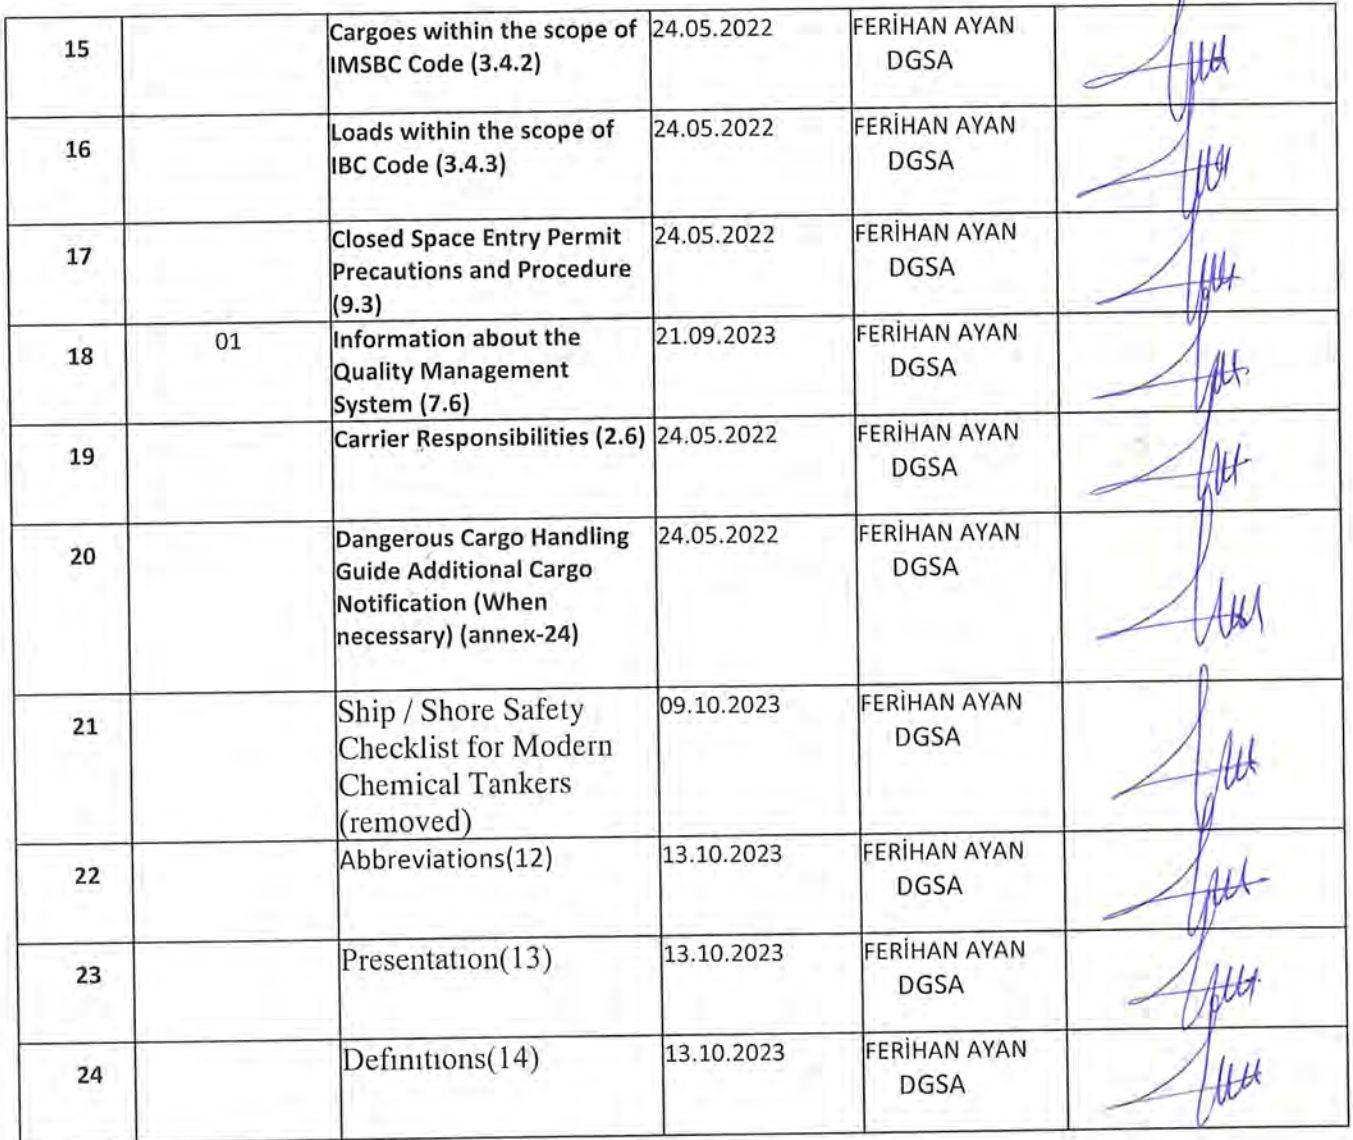 15
Cargoes within the scope of
IMSBC Code (3.4.2)
24.05.2022
FERİHAN AYAN
DGSA
16
Loads within the scope of
IBC Code (3.4.3)
24.05.2022
FERİHAN AYAN
DGSA
17
Closed Space Entry Permit
Precautions and Procedure
(9.3)
24.05.2022
FERİHAN AYAN
DGSA
18
01
Information about the
Quality Management
System (7.6)
21.09.2023
FERİHAN AYAN
DGSA
19
Carrier Responsibilities (2.6)
24.05.2022
FERİHAN AYAN
DGSA
20
Dangerous Cargo Handling
Guide Additional Cargo
Notification (When
necessary) (annex-24)
24.05.2022
FERİHAN AYAN
DGSA
21
Ship / Shore Safety
Checklist for Modern
Chemical Tankers
(removed)
09.10.2023
FERİHAN AYAN
DGSA
22
Abbreviations(12)
13.10.2023
FERİHAN AYAN
DGSA
23
Presentation(13)
13.10.2023
FERİHAN AYAN
DGSA
24
Definıtıons(14)
13.10.2023
FERİHAN AYAN
DGSA